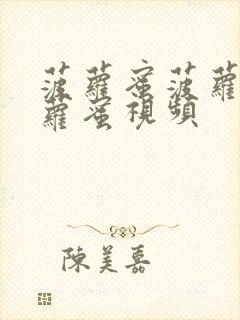 菠蘿蜜菠蘿
蘿蜜視頻
陳美嘉